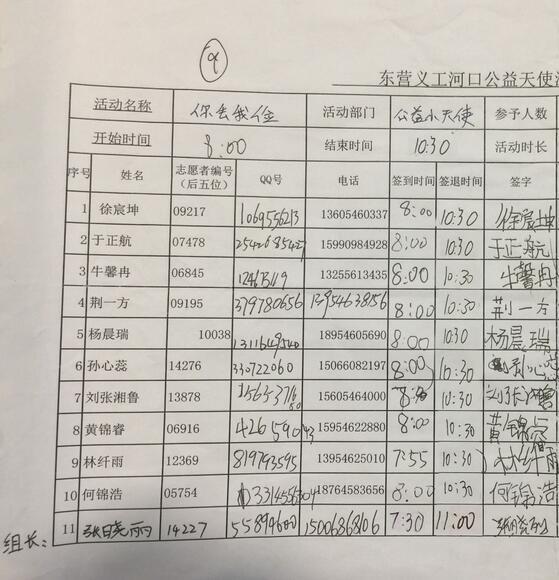 9
东营义工河口公益天使
活动名称 你丢我捡 活动部门 公益小天使 参予人数
开始时间 8:00 结束时间 10:30 活动时长
序号 姓名 志愿者编号（后五位） QQ号 电话 签到时间 签退时间 签字
1 徐宸坤 09217 1069556213 13605460337 8:00 10:30 徐宸坤
2 于正航 07478 15990984928 8:00 10:30 于正航
3 牛馨冉 06845 13255613435 8:00 10:30 牛馨冉
4 荆一方 09195 379780656 13954638156 8:00 10:30 荆一方
5 杨晨瑞 10038 1311649540 18954605690 8:00 10:30 杨晨瑞
6 孙心蕊 14276 330722060 15066082197 8:00 10:30 孙心蕊
7 刘张湘鲁 13878 15605464000 8:00 10:30
8 黄锦睿 06916 15954622880 8:00 10:30 黄锦睿
9 林纤雨 12369 819793595 13954625010 7:55 10:30 林纤雨
10 何锦浩 05754 18764583656 8:00 10:30 何锦浩
组长： 11 张晓丽 14227 55894600 15006868106 7:30 11:00 张晓丽